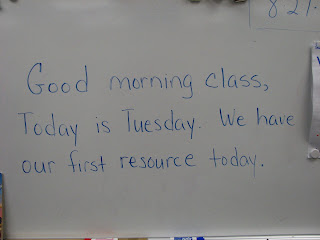 Good morning class,
Today is Tuesday. We have
our first resource today.